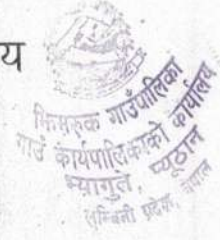 य
झिमरुक गाउँपालिका
गाउँ कार्यपालिकाको कार्यालय
भ्यागुते, प्यूठान
लुम्बिनी प्रदेश, नेपाल